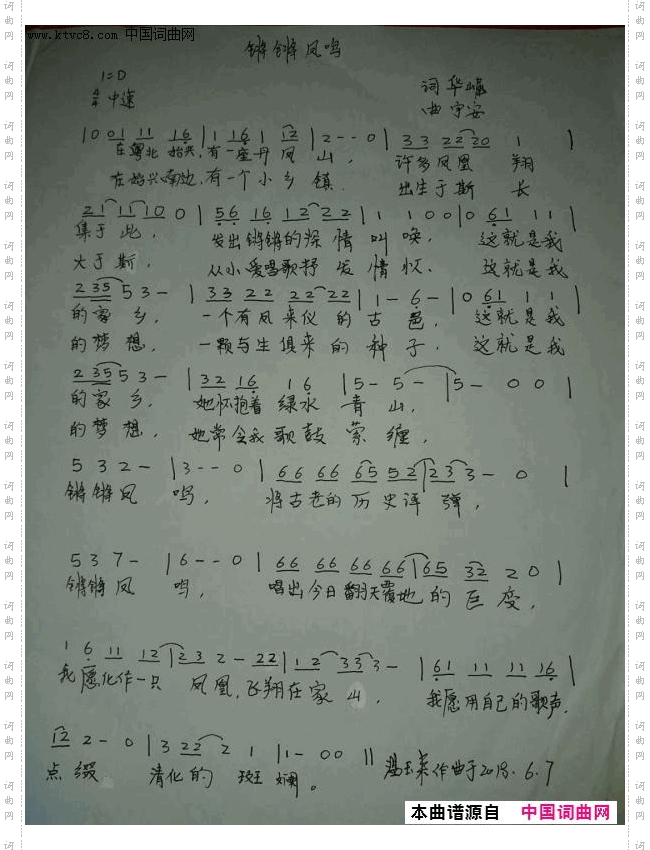 www.ktvc8.com 中国词曲网
锵锵凤鸣
1=D
4/4 中速
词 华嵘
曲 宇安
|0 01 11 16|1 16 1 12|2--0|33 22 20 1|
在粤北始兴,有一座丹凤山, 许多凤凰翔
在始兴南边,有一个小乡镇. 出生于斯长
21 11 10 0|56 16 12 22|1 1 00|0 61 11|
集于此, 发出锵锵的深情叫唤, 这就是我
大于斯, 从小爱唱歌抒发情怀. 这就是我
235 53-|33 22 22 22|1-6-|0 61 1 1|
的家乡, 一个有凤来仪的古邑, 这就是我
的梦想, 一颗与生俱来的种子. 这就是我
235 53-|32 16 1 6|5-5-|5-00|
的家乡, 她怀抱着绿水青山,
的梦想, 她常令我歌鼓萦缠,
532-|3--0|66 66 65 52|23 3-0|
锵锵凤鸣, 将古老的历史评弹,
537-|6--0|66 66 66 66|65 32 20|
锵锵凤鸣, 唱出今日翻天覆地的巨变,
1 6 11 12|23 2-22|12 33 3-|61 11 11 16|
我愿化作一只凤凰,飞翔在家山, 我愿用自己的歌声,
12 2-0|3 22 2 1|1-00||
点缀清化的斑斓。
作曲于2018.6.7
本曲谱源自 中国词曲网
词曲网